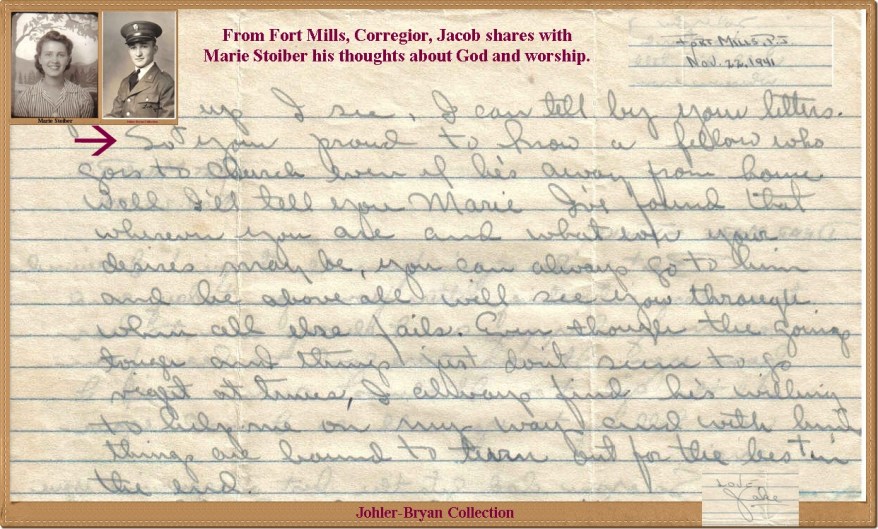 From Fort Mills, Corregior, Jacob shares with
Marie Stoiber his thoughts about God and worship.
Fort Mills, P.I.
Nov. 22, 1941
Marie Stoiber
up I see, I can tell by your letters.
So your proud to know a fellow who
goes to church even if he's away from home
well I'll tell you Marie I've found that
wherever you are and what ever your
desires may be, you can always go to him
and he above all will see you through
when all else fails. Even though the going
tough and things just don't seem to go
right at times, I always find he's willing
to help me on my way and with him
things are bound to turn out for the best in
the end.
Love
Jake
Johler-Bryan Collection